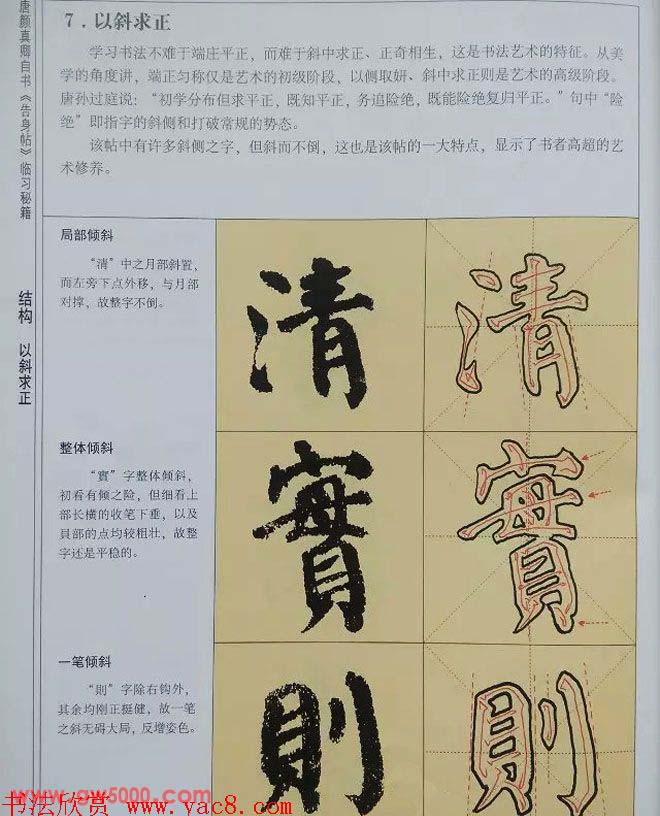 唐颜真卿自书《告身帖》临习秘籍
结构 以斜求正
7.以斜求正
学习书法不难于端庄平正，而难于斜中求正、正奇相生，这是书法艺术的特征。从美
学的角度讲，端正匀称仅是艺术的初级阶段，以侧取妍、斜中求正则是艺术的高级阶段。
唐孙过庭说：“初学分布但求平正，既知平正，务追险绝，既能险绝复归平正。”句中“险
绝”即指字的斜侧和打破常规的势态。
该帖中有许多斜侧之字，但斜而不倒，这也是该帖的一大特点，显示了书者高超的艺
术修养。
局部倾斜
“清”中之月部斜置，
而左旁下点外移，与月部
对撑，故整字不倒。
清 清
整体倾斜
“實”字整体倾斜，
初看有倾之险，但细看上
部长横的收笔下垂，以及
貝部的点均较粗壮，故整
字还是平稳的。
實 實
一笔倾斜
“則”字除右钩外，
其余均刚正挺健，故一笔
之斜无碍大局，反增姿色。
則 則
www.gw5000.com
书法欣赏 www.yac8.com